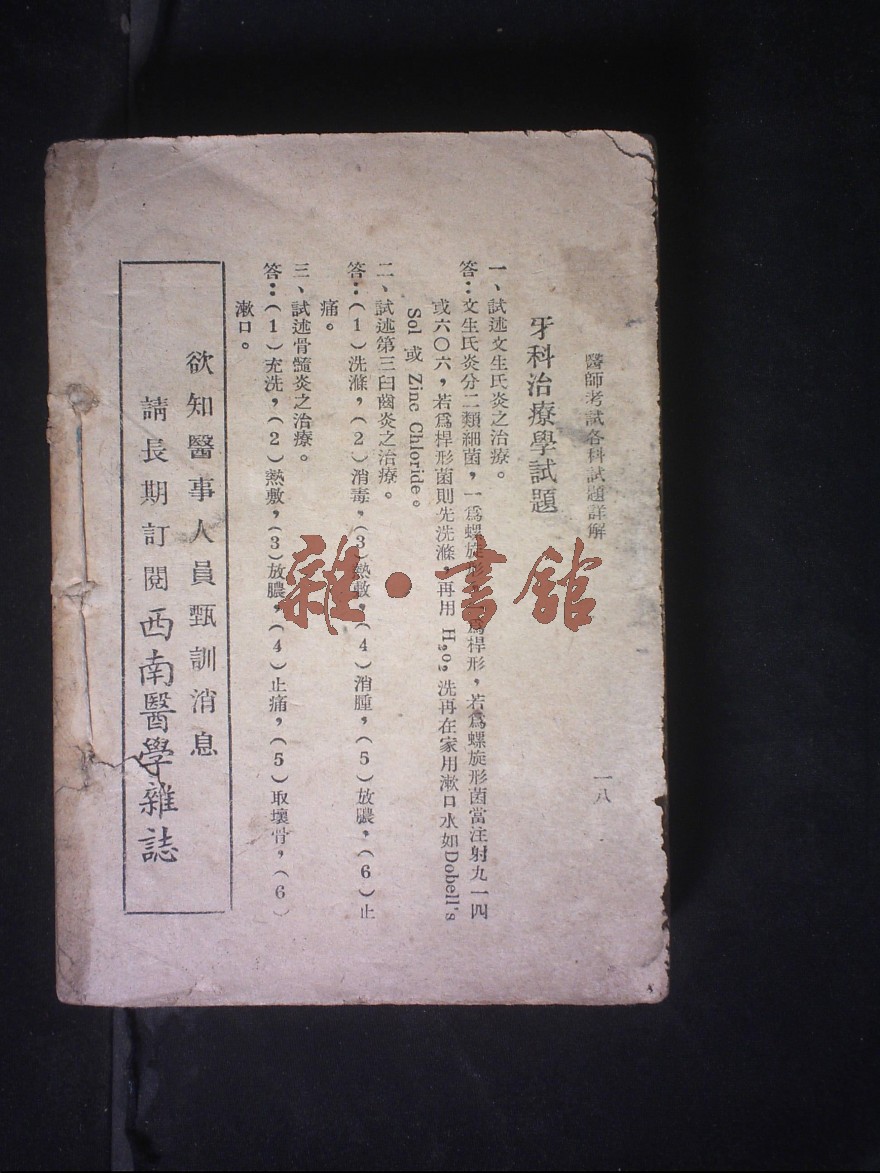 醫師考試各科試題詳解
一八
牙科治療學試題
一、試述文生氏炎之治療。
答:文生氏炎分二類細菌,一爲螺旋形 爲桿形,若爲螺旋形菌當注射九一四
或六〇六,若爲桿形菌則先洗滌,再用 H₂O₂ 洗再在家用漱口水如Dobell's
Sol 或 Zinc Chloride。
二、試述第三臼齒炎之治療。
答:(1)洗滌,(2)消毒,(3)熱敷,(4)消腫,(5)放膿,(6)止
痛。
三、試述骨髓炎之治療。
答:(1)充洗,(2)熱敷,(3)放膿,(4)止痛,(5)取壞骨,(6)
漱口。
欲知醫事人員甄訓消息
請長期訂閱西南醫學雜誌
雜·書館